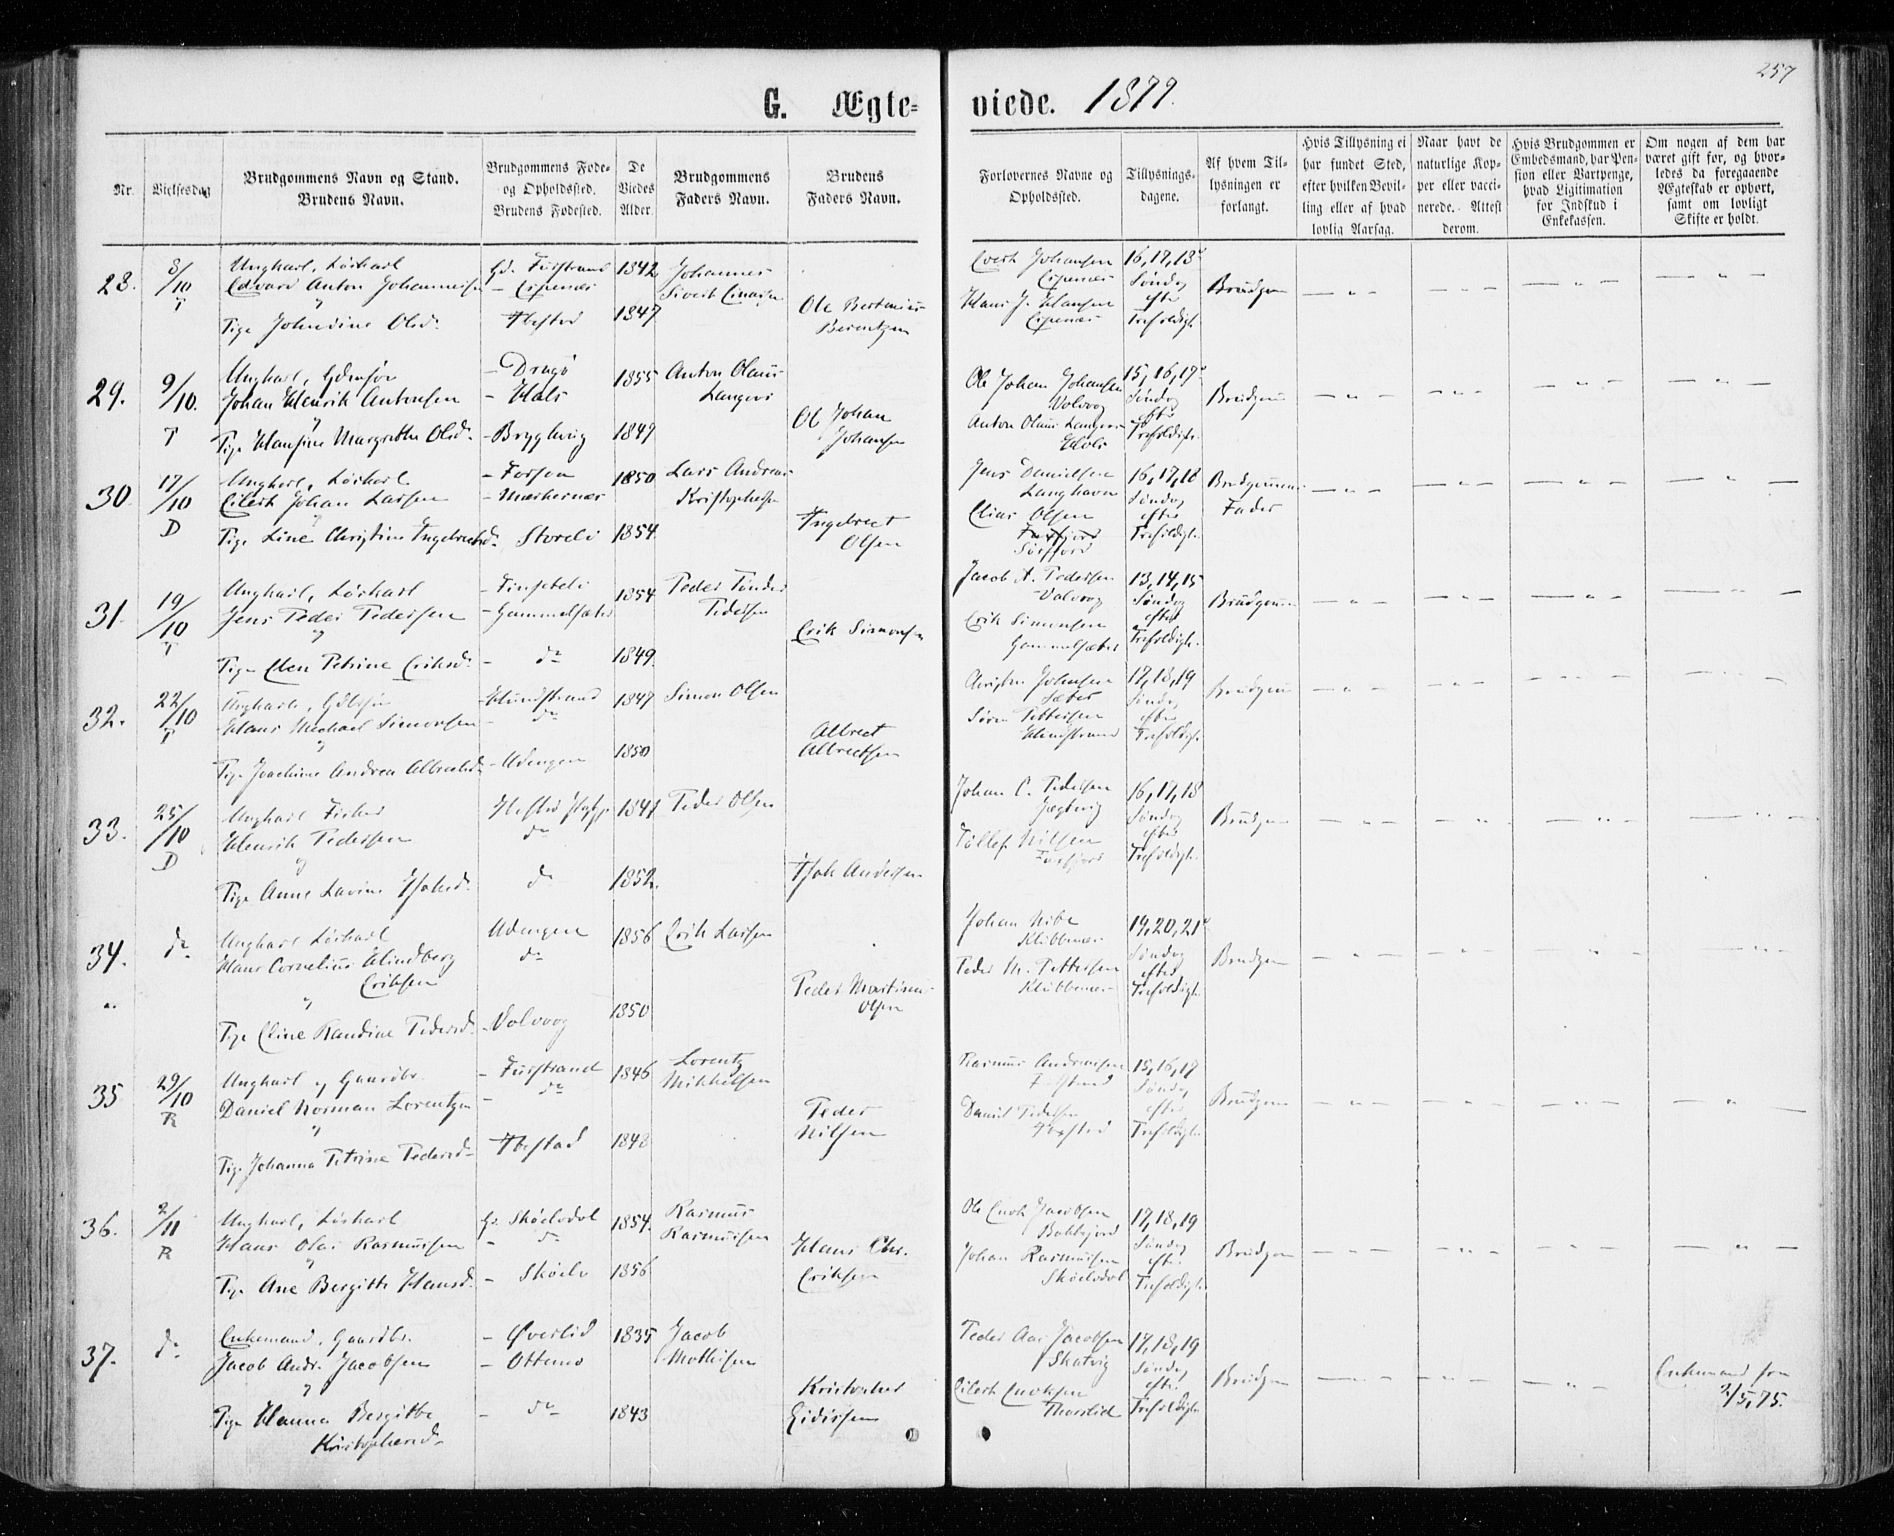 257
G. Ægte-
viede. 1877.
Nr.
Vielsesdag
Brudgommens Navn og Stand.
Brudens Navn.
Brudgommens Føde-
og Opholdssted.
Brudens Fødested.
De
Viedes
Alder
Brudgommens
Faders Navn.
Brudens
Faders Navn.
Forlovernes Navne og
Opholdssted.
Tillysnings-
dagene.
Af hvem Til-
lysningen er
forlangt.
Hvis Tillysning ei
har fundet Sted,
efter hvilken Bevil-
ling eller af hvad
lovlig Aarsag.
Naar havt de
naturlige Kop-
per eller vacci-
nerede. Attest
derom.
Hvis Brudgommen er
Embedsmand, har Pen-
sion eller Vartpenge,
hvad Ligitimation
for Indskud i
Enkekassen.
Om nogen af dem har
været gift før, og hvor-
ledes da foregaaende
Ægteskab er ophørt,
samt om lovligt
Skifte er holdt.
28. 8/10 T
Ungkarl, Løskarl
Edvard Anton Johannessen
Pige Johndine Olsd.
Gd. Furstrand
Ibestad
1842
1847
Johannes
Ole Bertinius
Berentzen
Evert Johansen
Espenes
Hans J. Hansen
Espenes
16, 17, 18de
Søndag
efter
Trefoldigh.
Brudgom
29. 9/10. T
Ungkarl,
Johan Henrik Antonsen
Pige Hansine Margrethe Olsd.
Hals
Brygvig
1855
1849
Anton Olaus
Langvi
Ol Johan
Johansen
Ole Johan Johansen
Volvog
Anton Olaus
Hals
15, 16, 17de
Søndag
efter
Trefoldigh.
Brudgom
30. 17/10 D
Ungkarl, Løskarl
Eilert Johan Larsen
Pige Line Christine Ingebretsd.
Forsen
Storeli
1850
1854
Lars Andreas
Kristophersen
Ingebrect
Olsen
Jens Danielsen
Langhavn
Elias Olsen
Sørfjord
16, 17, 18
Søndag
efter
Trefoldigh.
Brudgommens
Fader
31. 19/10 T
Ungkarl, Løskarl
Jens Peder Pedersen
Pige Elen Petrine Eriksd.
Gammelsæter
do
1854
1849.
Peder Tønder
Pedersen
Erik Simonsen
Jacob A. Pedersen
Volvog
Erik Simonsen
Gammelsæter
13, 14, 15
Søndag
efter
Trefoldigh.
Brudgommen
32. 22/10 T
Ungkarl,
Hans Mechael Simonsen
Pige Joachime Andrea Albrectsd.
do
Adengen
1847
1850
Simon Olsen
Albrect
Albrectsen
Johansen
Sæter
Søren Pettersen
17, 18, 19
Søndag
efter
Trefoldigh.
Brudgom
33. 25/10 D
Ungkarl Fisker
Henrik Pedersen
Pige Anne Lavine
do
do
1852.
Peder Olsen
Andersen
Johan C. Pedersen
Jægtvig
Tollef Nilsen
16, 17, 18
Søndag
efter
Trefoldigh.
Brudgom
34. do
Ungkarl Løskarl
Hans Cornelius Lindberg
Eriksen
Pige Eline Randine Pedersd.
Adengen
do
Volvoog
1856
1850
Erik Larsen
Peder Martinus
Olsen
Johan Nibe
Klubbenes
Peder M. Pettersen
Klubbenes
19, 20, 21de
Søndag
efter
Trefoldigh.
Brudgom
35 29/10 R
Ungkarl og Gaardbr.
Daniel Norman Lorentzen
Pige Johanna Petrine Pedersd.
Furstrand
do
Ibestad
1846
1848
Lorentz
Mikkelsen
Peder
Nilsen
Rasmus Andreassen
Daniel Pedersen
Ibestad
15, 16, 17
Søndag
efter
Trefoldigh.
Brudgom
36. 2/11 R
Ungkarl, Løskarl
Hans Olai Rasmussen
Pige Ane Bergitte Hansd.
Gd. Skøelvdal
do
Skøelv
1854.
1856
Rasmus
Rasmussen
Hans Chr.
Eriksen
Ole Enok Jacobsen
Johan Rasmussen
Skøelvdal
17, 18, 19
Søndag
efter
Trefoldigh.
Brudgom
37. do
Enkemand, Gaardbr.
Jacob Andr. Jacobsen
Pige Hanna Bergitte
Kristophersd.
Øverlid
do
1835
1843
Jacob
Mathisen
Kristopher
Peder Aas Jacobsen
Skatvig
Eilert Enoksen
Thorslid
17, 18, 19
Søndag
efter
Trefoldigh.
Brudgom
Enkemand fra
2/5, 75.